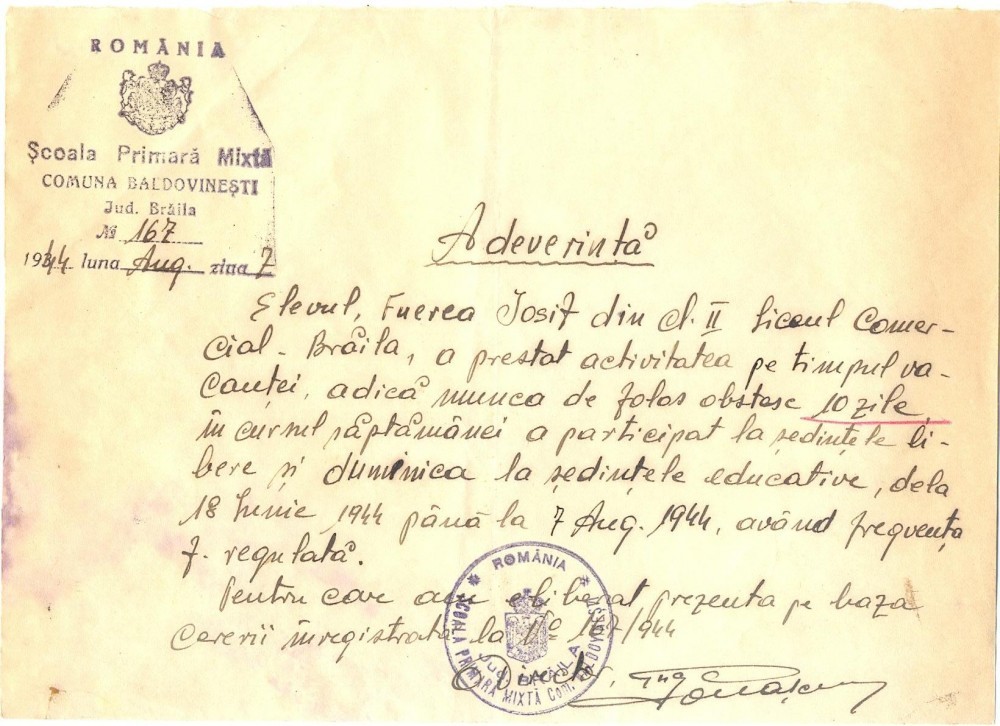 ROMÂNIA
Școala Primară Mixtă
COMUNA BALDOVINEȘTI
Jud. Brăila
№ 167
1944 luna Aug. ziua 7
Adeverință
Elevul, Fuerea Iosif din cl. II Liceul Comer-
cial - Brăila, a prestat activitatea pe timpul va-
canței, adică munca de folos obștesc 10 zile,
în cursul săptămânei a participat la ședințele li-
bere și duminica la ședințele educative, dela
18 Iunie 1944 până la 7 Aug. 1944, având frequența
f. regulată.
Pentru care am eliberat prezenta pe baza
cererii înregistrată la No 167/944
Director,
ROMÂNIA
ȘCOALA PRIMARĂ MIXTĂ Com. BALDOVINEȘTI
Jud. BRĂILA